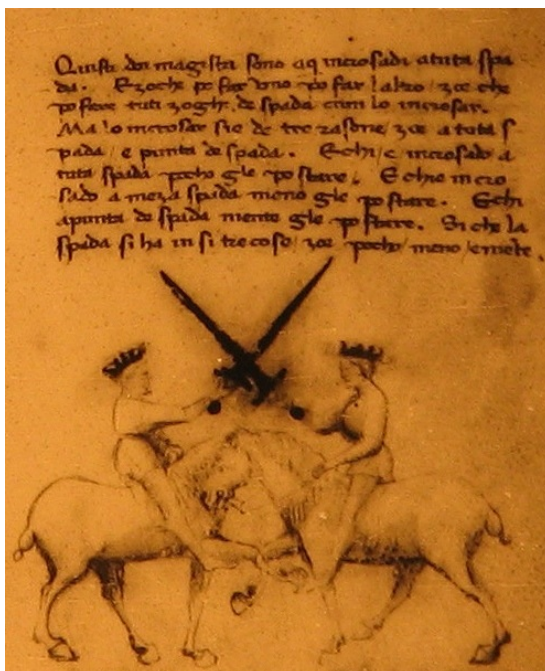 Quisti doi magistri sono aq incrosadi a tuta spa
da. E zoche po far uno po far l altro / zoe che
po fare tuti zoghi de spada cum lo incrosar.
Ma lo incrosar sie de tre rasone / zoe a tuta s
pada / e punta de spada. E chi / e incrosado a
tuta spada pocho gle po stare. E chie incro
sado a meza spada meno gle po stare. E chi
a punta de spada niente gle po stare. Si che la
spada si ha in si tre cose / zoe pocho / meno / e niete.